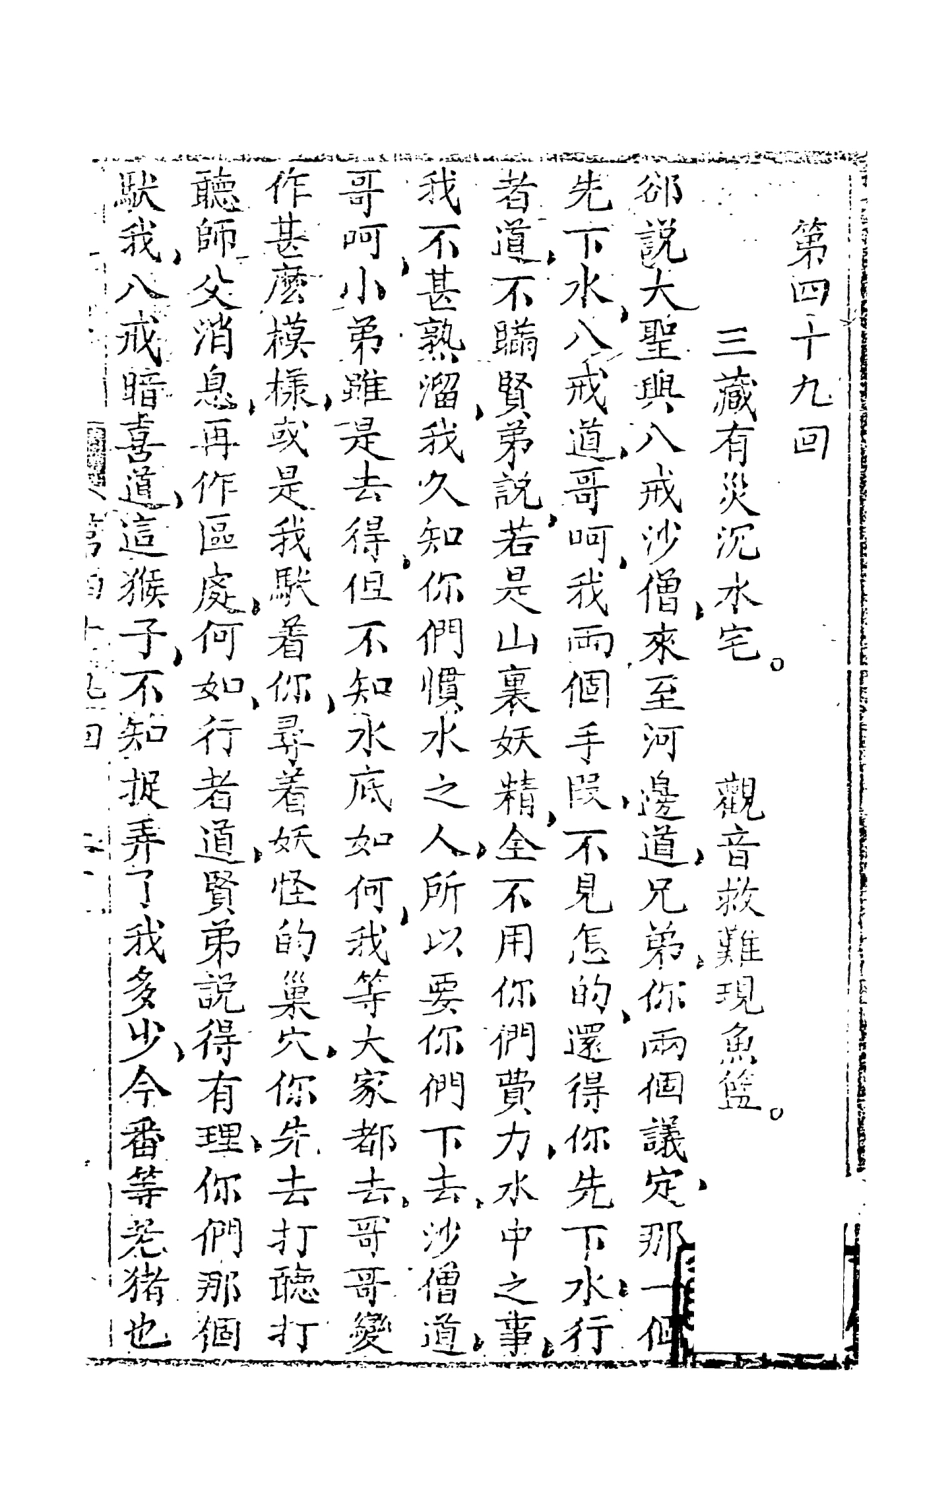 第四十九回
三藏有災沉水宅。　觀音救難現魚籃。
郤説大聖與八戒沙僧、來至河邊道、兄弟、你兩個議定、那一個
先下水、八戒道、哥呵、我兩個手段、不見怎的、還得你先下水、行
者道、不瞞賢弟説、若是山裏妖精、全不用你們費力、水中之事、
我不甚熟溜、我久知你們慣水之人、所以要你們下去、沙僧道、
哥呵、小弟雖是去得、但不知水底如何、我等大家都去、哥哥變
作甚麽模樣、或是我馱着你、尋着妖怪的巢穴、你先去打聽打
聽師父消息、再作區處、何如、行者道、賢弟説得有理、你們那個
馱我、八戒暗喜道、這猴子、不知捉弄了我多少、今番等老猪也
第四十九回